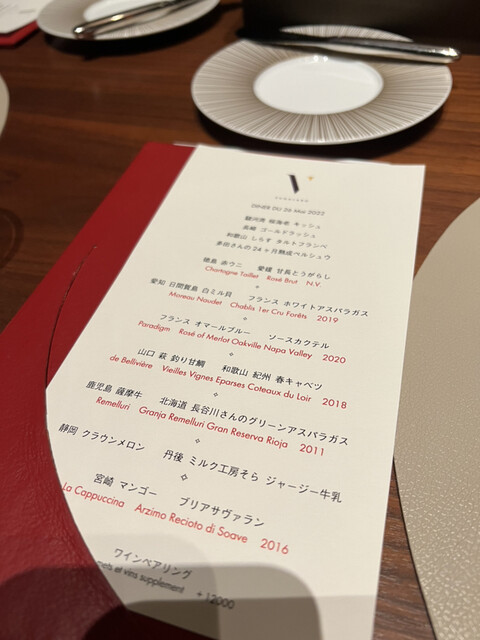 V
DINER DU 26 Mai 2022
駿河湾 桜海老 キッシュ
長崎 ゴールドラッシュ
和歌山 しらす タルトフランベ
多田さんの24ヶ月熟成ペルシュウ
徳島 赤ウニ 愛媛 甘長とうがらし
Chartogne Taillet Rosé Brut N.V.
愛知 日間賀島 白ミル貝 フランス ホワイトアスパラガス
Moreau Naudet Chablis 1er Cru Forêts 2019
フランス オマールブルー ソースカクテル
Paradigm Rosé of Merlot Oakville Napa Valley 2020
山口 萩 釣り甘鯛 和歌山 紀州 春キャベツ
de Bellivière Vieilles Vignes Eparses Coteaux du Loir 2018
鹿児島 薩摩牛 北海道 長谷川さんのグリーンアスパラガス
Remelluri Granja Remelluri Gran Reserva Rioja 2011
静岡 クラウンメロン 丹後 ミルク工房そら ジャージー牛乳
宮崎 マンゴー ブリアサヴァラン
La Cappuccina Arzimo Recioto di Soave 2016
ワインペアリング
et vins supplement +12000